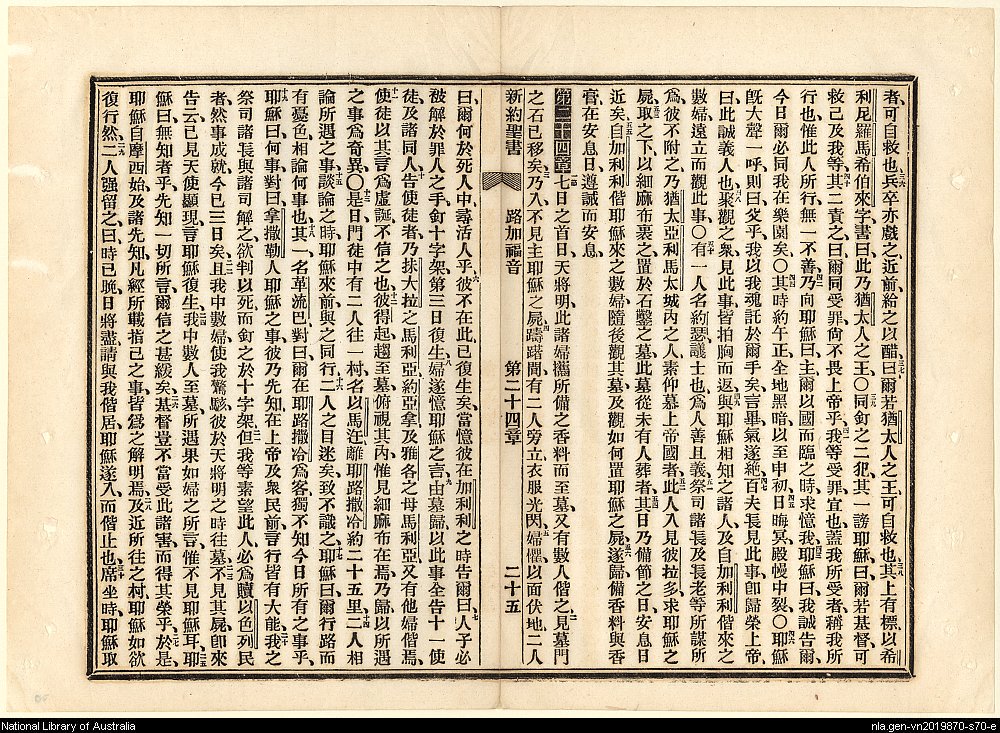 者可自救也兵卒亦戲之近前給之以醋曰爾若猶太人之王可自救也其上有標以希
利尼羅馬希伯來字書曰此乃猶太人之王○同釘之二犯其一謗耶穌曰爾若基督可
救己及我等其二責之曰爾同受罪尙不畏上帝乎我等受罪宜也蓋我所受者稱我所
行也惟此人所行無一不善乃向耶穌曰主爾以國而臨之時求憶我耶穌曰我誠告爾
今日爾必同我在樂園矣○其時約午正全地黑暗以至申初日晦冥殿幔中裂○耶穌
旣大聲一呼則曰父乎我以我魂託於爾手矣言畢氣遂絶百夫長見此事卽歸榮上帝
曰此誠義人也聚觀之衆見此事皆拍胸而返與耶穌相知之諸人及自加利利偕來之
數婦遠立而觀此事○有一人名約瑟議士也爲人善且義祭司諸長及長老等所謀所
爲彼不附之乃猶太亞利馬太城內之人素仰慕上帝國者此人入見彼拉多求耶穌之
屍取之下以細麻布裹之置於石鑿之墓此墓從未有人葬者其日乃備節之日安息日
近矣自加利利偕耶穌來之數婦隨後觀其墓及觀如何置耶穌之屍遂歸備香料與香
膏在安息日遵誡而安息
第二十四章七日之首日天將明此諸婦攜所備之香料而至墓又有數人偕之見墓門
之石已移矣乃入不見主耶穌之屍躊躇間有二人旁立衣服光閃婦懼以面伏地二人
新約聖書 路加福音 第二十四章 二十五
曰爾何於死人中尋活人乎彼不在此已復生矣當憶彼在加利利之時告爾曰人子必
被解於罪人之手釘十字架第三日復生婦遂憶耶穌之言由墓歸以此事全告十一使
徒及諸同人告使徒者乃抹大拉之馬利亞約亞拿及雅各之母馬利亞又有他婦偕焉
使徒以其言爲虛誕不信之也彼得起趨至墓俯視其內惟見細麻布在焉乃歸以所遇
之事爲奇異○是日門徒中有二人往一村名以馬迕離耶路撒冷約二十五里二人相
論所遇之事談論之時耶穌來前與之同行二人之目迷矣致不識之耶穌曰爾行路而
有憂色相論何事也其一名革流巴對曰爾在耶路撒冷爲客獨不知今日所有之事乎
耶穌曰何事對曰拿撒勒人耶穌之事彼乃先知在上帝及衆民前言行皆有大能我之
祭司諸長與諸司解之欲判以死而釘之於十字架但我等素望此人必爲贖以色列民
者然事成就今已三日矣且我中數婦使我驚駭彼於天將明之時往墓不見其屍卽來
告云已見天使顯現言耶穌復生我中數人至墓所遇果如婦之所言惟不見耶穌耳耶
穌曰無知者乎先知一切所言爾信之甚緩矣基督豈不當受此諸害而得其榮乎於是
耶穌自摩西始及諸先知凡經所載指己之事皆爲之解明焉及近所往之村耶穌如欲
復行然二人强留之曰時已晚日將盡請與我偕居耶穌遂入而偕止也席坐時耶穌取
National Library of Australia
nla.gen-vn2019870-s70-e